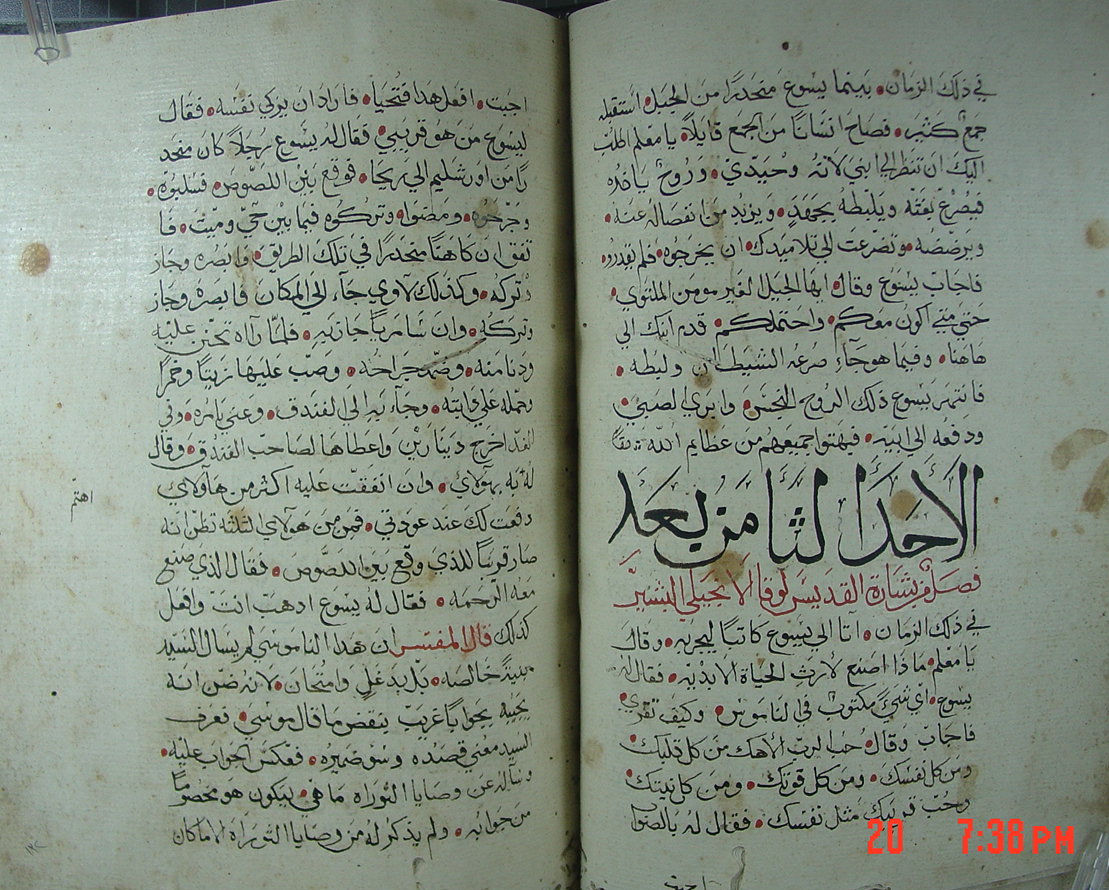 في ذلك الزمان. بينما يسوع منحدرًا من الجبل. استقبله
جمع كثير. فصاح انسانا من الجمع قايلًا. يا معلم اطلب
اليك ان تنظر الي ابني لانه وحيدي. وروح ياخذه
فيصرع بغته ويلبطه بجهد. ويزبد من انفصاله عنه.
ويرضضه. وتضرعت الي تلاميدك. ان يخرجوه. فلم يقدروا.
فاجاب يسوع وقال. ايها الجيل الغير مومن الملتوي.
حتي متي اكون معكم. واحتملكم. قدم ابنك الي
هاهنا. وفيما هو جاء صرعه الشيطان ولبطه.
فانتهر يسوع ذلك الروح النجس. وابري الصبي.
ودفعه الي ابيه. فبهتوا جميعهم من عظايم الله
الاحد الثامن بعد
فصل من بشارة القديس لوقا الانجيلي البشير
في ذلك الزمان. اتا الي يسوع كاتبًا ليجربه. وقال
يا معلم. ماذا اصنع لارث الحياة الابديه. فقال له
يسوع. اي شي مكتوب في الناموس. وكيف تقري.
فاجاب وقال. حب الرب الاهك من كل قلبك.
ومن كل نفسك. ومن كل قوتك. ومن كل نيتك.
وحب قريبك مثل نفسك. فقال له بالصواب
اجبت
اجبت. افعل هدا فتحيا. فاراد ان يزكي نفسه. فقال
ليسوع من هو قريبي. فقال له يسوع رجلًا كان منحد
رًا من اورشليم الي يريحا. فوقع بين اللصوص. فسلبوه.
وجرحوه. ومضوا. وتركوه فيما بين حي وميت. فا
تفق ان كاهنًا منحدرًا في تلك الطريق. فابصره وجاز
وتركه. وكذلك لاوي جاء الي المكان فابصره وجاز
وتركه. وان سامريًا جاز به. فلما رآه تحنن عليه
ودنا منه. وضمد جراحه. وصب عليها زيتًا وخمرًا
وحمله علي دابته. وجاء به الي الفندق. وعني بامره. وفي
الغد اخرج دينارين واعطاها لصاحب الفندق. وقال
له بهولاي. وان انفقت عليه اكثر من هاولاي
اهتم
دفعت لك عند عودتي. فمن من هولاي الثلثه تظن انه
صار قريبًا للذي وقع بين اللصوص. فقال الذي صنع
معه الرحمه. فقال له يسوع ادهب انت وافعل
كذلك قال المفسر ان هدا الناموسي لم يسال السيد
بنيةً خالصه. بل بدغلٍ وامتحان. لانه ضن انه
يجيبه بجوابًا غريب ينقض ما قال موسي. فعرف
السيد معني قصده وسو ضميره. فعكس الجواب عليه.
وساله عن وصايا التوراه ما هي. ليكون هو مخصومًا
من جوابه. ولم يذكر له من وصايا التوراة الا ماكان
20 7:38 PM